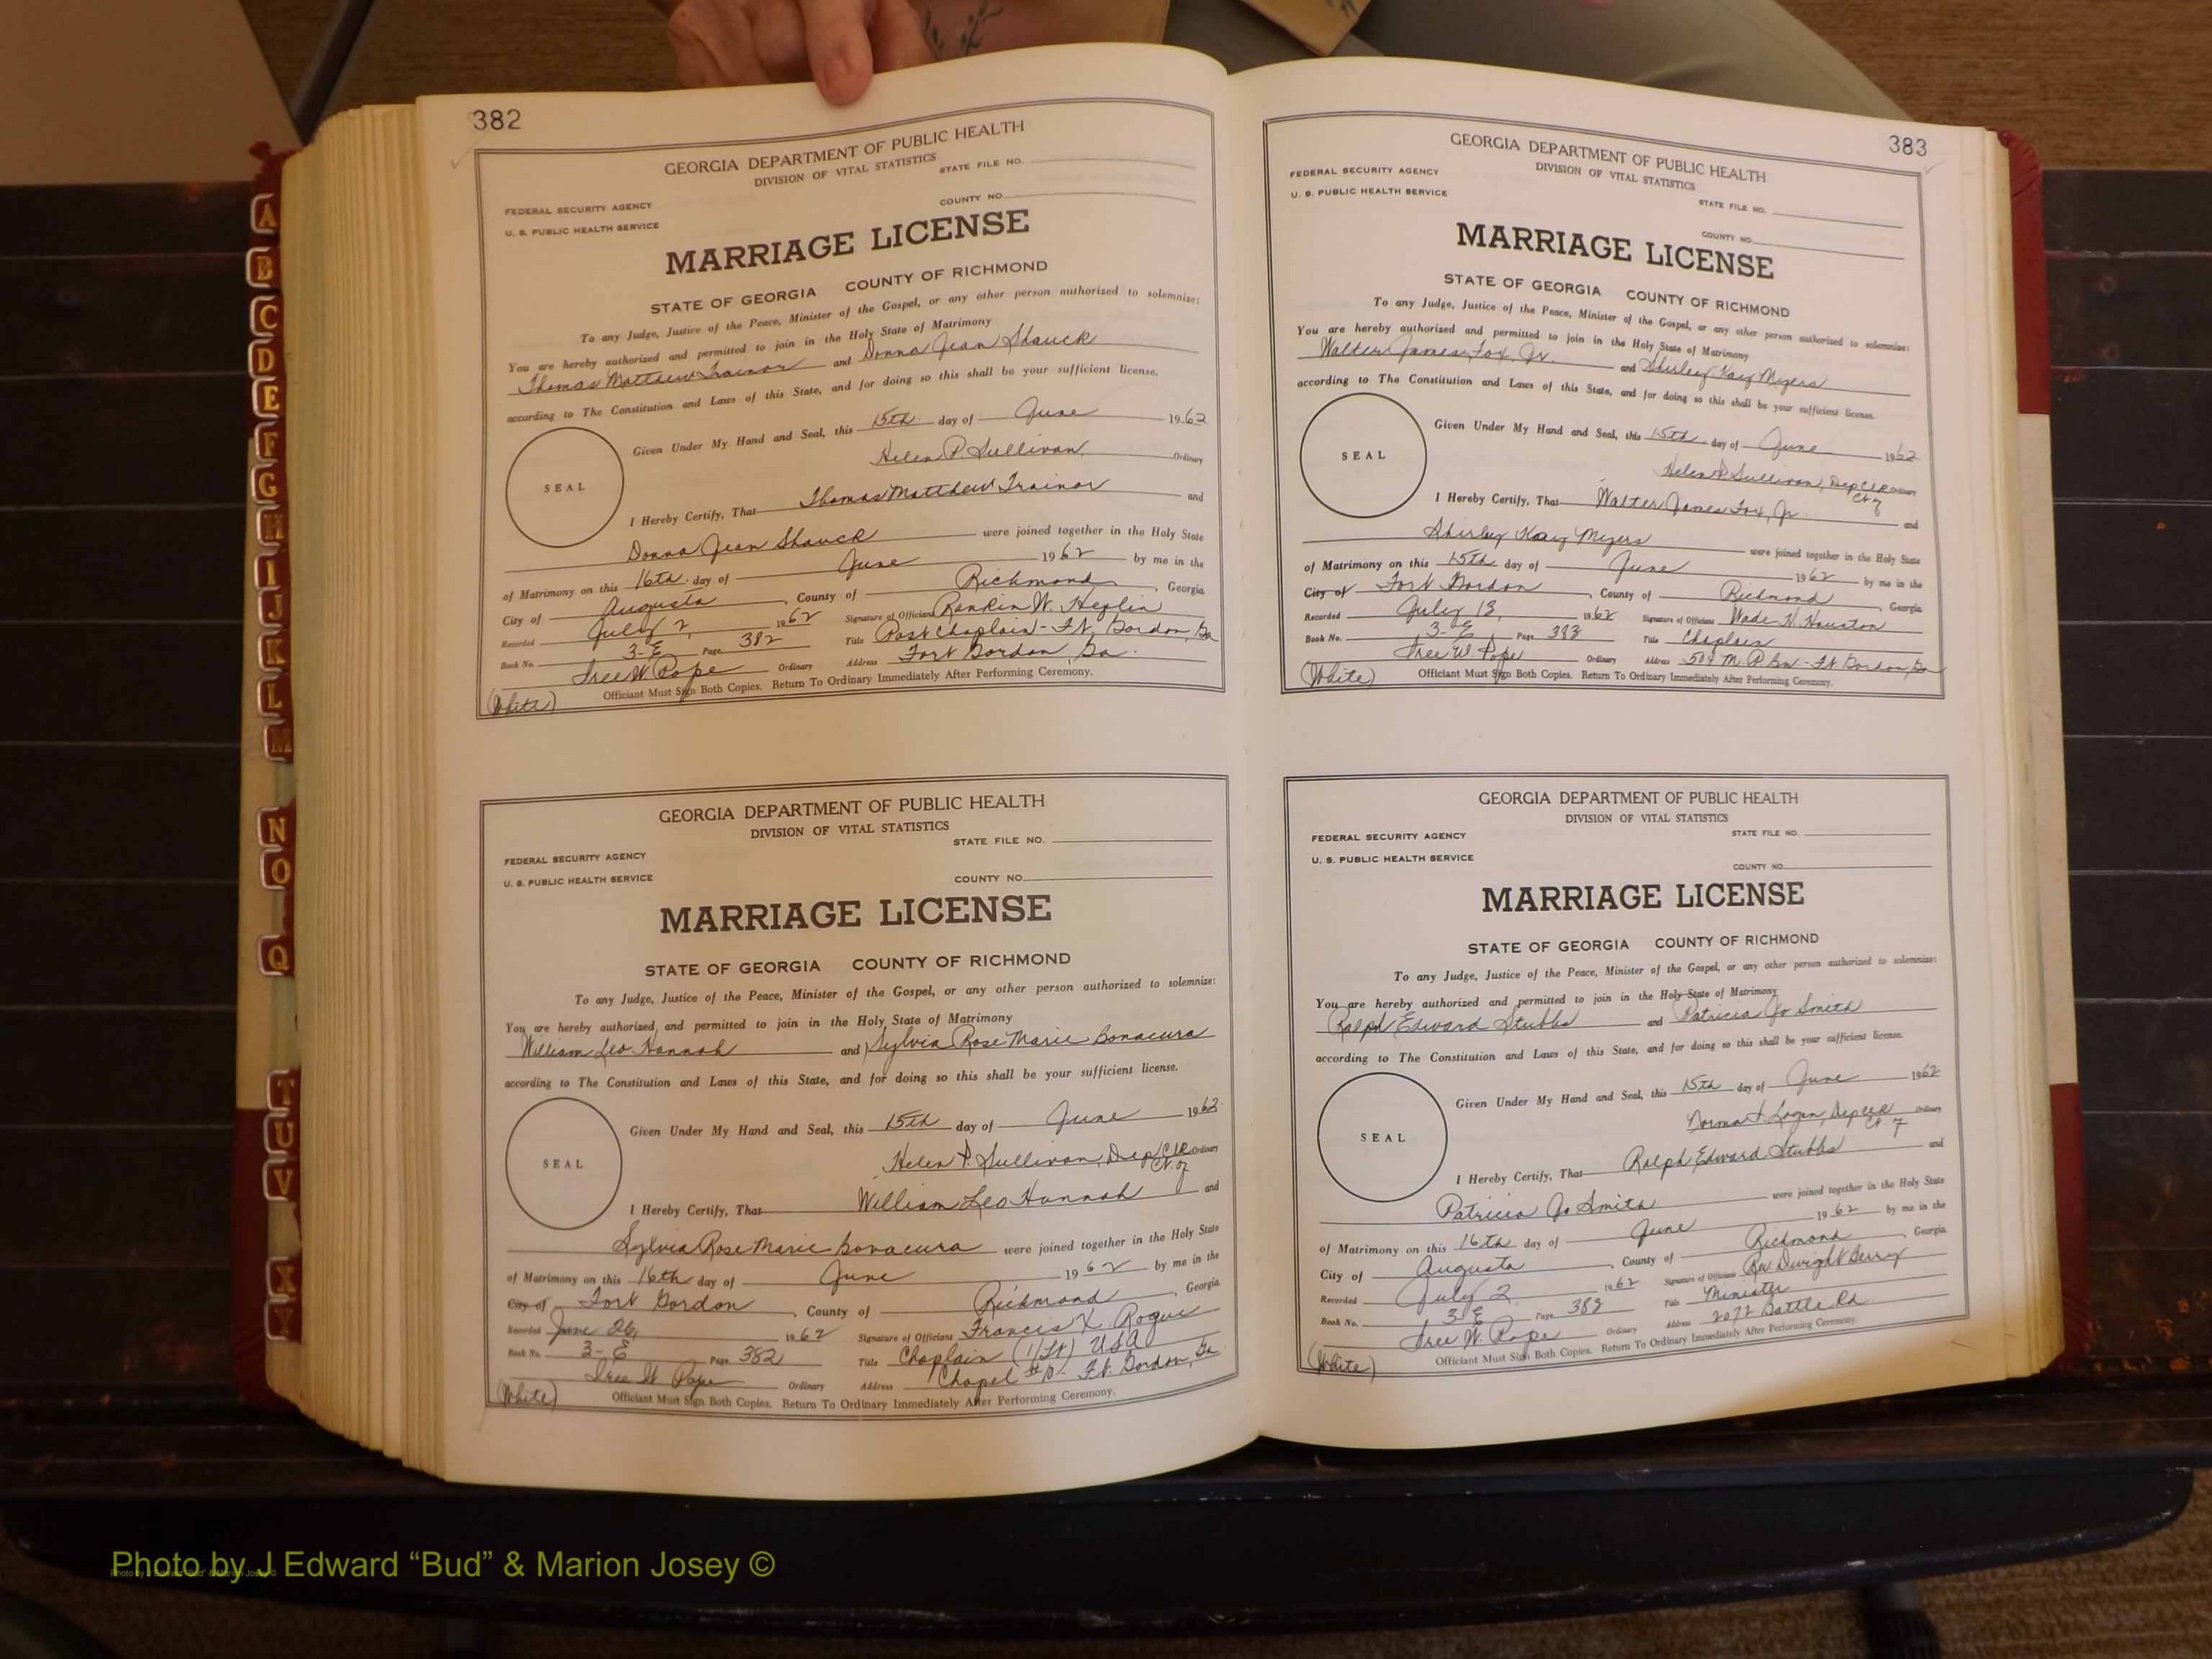 382
GEORGIA DEPARTMENT OF PUBLIC HEALTH
DIVISION OF VITAL STATISTICS
STATE FILE NO.
FEDERAL SECURITY AGENCY
COUNTY NO.
U. S. PUBLIC HEALTH SERVICE
MARRIAGE LICENSE
STATE OF GEORGIA COUNTY OF RICHMOND
To any Judge, Justice of the Peace, Minister of the Gospel, or any other person authorized to solemnize:
You are hereby authorized and permitted to join in the Holy State of Matrimony
Thomas Matthew Trainor and Donna Jean Shauck
according to The Constitution and Laws of this State, and for doing so this shall be your sufficient license.
Given Under My Hand and Seal, this 15th day of June 1962
Helen P. Sullivan Ordinary
SEAL
I Hereby Certify, That Thomas Matthew Trainor and
Donna Jean Shauck were joined together in the Holy State
of Matrimony on this 16th day of June 1962 by me in the
City of Augusta, County of Richmond, Georgia.
Recorded July 2, 1962 Signature of Officiant Rankin W. Heflin
Book No. 3-E Page 382 Title Post Chaplain - Ft. Gordon, Ga
Tree W. Pope Ordinary Address Fort Gordon, Ga.
(White) Officiant Must Sign Both Copies. Return To Ordinary Immediately After Performing Ceremony.
GEORGIA DEPARTMENT OF PUBLIC HEALTH
DIVISION OF VITAL STATISTICS
STATE FILE NO.
FEDERAL SECURITY AGENCY
U. S. PUBLIC HEALTH SERVICE COUNTY NO.
MARRIAGE LICENSE
STATE OF GEORGIA COUNTY OF RICHMOND
To any Judge, Justice of the Peace, Minister of the Gospel, or any other person authorized to solemnize:
You are hereby authorized and permitted to join in the Holy State of Matrimony
William Leo Hannah and Sylvia Rose Marie Bonacura
according to The Constitution and Laws of this State, and for doing so this shall be your sufficient license.
Given Under My Hand and Seal, this 15th day of June 1962
Helen P. Sullivan, Dep Clk Ordinary
Ct. of
SEAL
I Hereby Certify, That William Leo Hannah and
Sylvia Rose Marie Bonacura were joined together in the Holy State
of Matrimony on this 16th day of June 1962 by me in the
City of Fort Gordon, County of Richmond, Georgia.
Recorded June 26, 1962 Signature of Officiant Francis X. Rogue
Book No. 3-E Page 382 Title Chaplain (1/Lt) USA
Tree W. Pope Ordinary Address Chapel #10 - Ft. Gordon, Ga
(White) Officiant Must Sign Both Copies. Return To Ordinary Immediately After Performing Ceremony.
383
GEORGIA DEPARTMENT OF PUBLIC HEALTH
DIVISION OF VITAL STATISTICS
FEDERAL SECURITY AGENCY
U. S. PUBLIC HEALTH SERVICE
STATE FILE NO.
COUNTY NO.
MARRIAGE LICENSE
STATE OF GEORGIA COUNTY OF RICHMOND
To any Judge, Justice of the Peace, Minister of the Gospel, or any other person authorized to solemnize:
You are hereby authorized and permitted to join in the Holy State of Matrimony
Walter James Fox, Jr. and Shirley Kay Myers
according to The Constitution and Laws of this State, and for doing so this shall be your sufficient license.
Given Under My Hand and Seal, this 15th day of June 1962
Helen P. Sullivan, Dep Clk Ordinary
Ct of
SEAL
I Hereby Certify, That Walter James Fox, Jr. and
Shirley Kay Myers were joined together in the Holy State
of Matrimony on this 15th day of June 1962 by me in the
City of Fort Gordon, County of Richmond, Georgia
Recorded July 13, 1962 Signature of Officiant Wade H. Hauston
Book No. 3-E Page 383 Title Chaplain
Tree W. Pope Ordinary Address 504 M.P. Bn - Ft. Gordon, Ga
(White) Officiant Must Sign Both Copies. Return To Ordinary Immediately After Performing Ceremony.
GEORGIA DEPARTMENT OF PUBLIC HEALTH
DIVISION OF VITAL STATISTICS
FEDERAL SECURITY AGENCY STATE FILE NO.
U. S. PUBLIC HEALTH SERVICE
COUNTY NO.
MARRIAGE LICENSE
STATE OF GEORGIA COUNTY OF RICHMOND
To any Judge, Justice of the Peace, Minister of the Gospel, or any other person authorized to solemnize:
You are hereby authorized and permitted to join in the Holy State of Matrimony
Ralph Edward Stubbs and Patricia Jo Smith
according to The Constitution and Laws of this State, and for doing so this shall be your sufficient license.
Given Under My Hand and Seal, this 15th day of June 1962
Norma L. Logan, Dep Clk Ordinary
Ct of
SEAL
I Hereby Certify, That Ralph Edward Stubbs and
Patricia Jo Smith were joined together in the Holy State
of Matrimony on this 16th day of June 1962 by me in the
City of Augusta, County of Richmond, Georgia
Recorded July 2, 1962 Signature of Officiant Rev Dwight Berry
Book No. 3-E Page 383 Title Minister
Tree W. Pope Ordinary Address 2072 Battle Rd.
(White) Officiant Must Sign Both Copies. Return To Ordinary Immediately After Performing Ceremony.
A
B
C
D
E
F
G
H
I
J
K
L
M
N
O
Q
T
U
V
X
Y
Photo by J Edward “Bud” & Marion Josey ©
Photo by J Edward "Bud" & Marion Josey ©